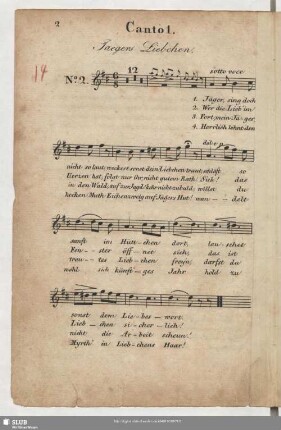 2
Canto 1.
Jaegers Liebchen.
14
No. 2.
12
sotto voce
1. Jäger, sing doch
2. Wer die Lieb' im
3. Fort, mein Jäger,
4. Herrlich lohnt den
dolce p
nicht so laut, weckest sonst dein Liebchen traut, schläft so
Herzen hat, folgt nur ihr nicht gutem Rath. Sieh! das
in den Wald, auf zur Jagd! kehr nicht zu bald; willst du
kecken Muth Eichenzweig auf Jägers Hut! wan - delt
sanft im Hütt - chen dort, lau - schet
Fen - ster öff - net sich; das ist
trau - tes Lieb - chen freyn, darfst du
wohl sich künft' - ges Jahr hold zu
sonst dem Lie - bes - wort.
Lieb - chen si - cher - lich!
nicht die Ar - beit scheun!
Myrth' in Lieb - chens Haar!
SLUB